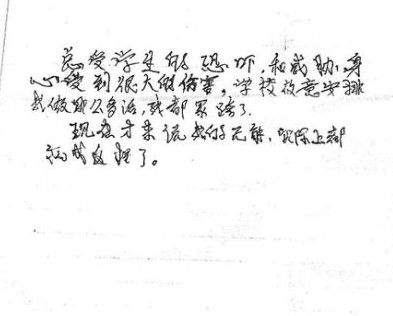 忍受学生的恐吓,和威胁,身
心受到很大的伤害,学校故意安排
我做那么多活,我都累跨了.
现在才来说我的无能,实际上都